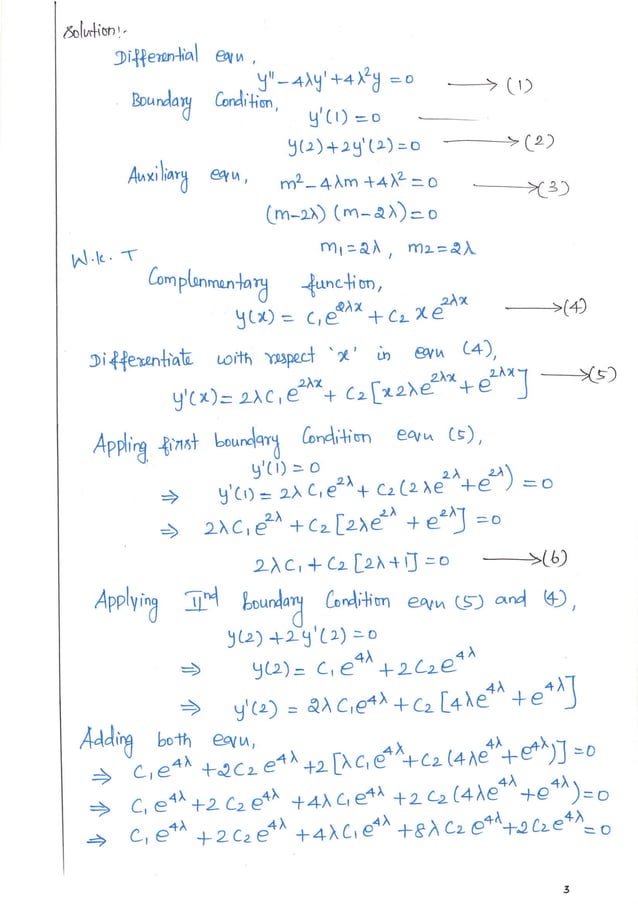 Solution:-
Differential equ,
y'' - 4λy' + 4λ²y = 0 ⟶ (1)
Boundary Condition,
y'(1) = 0 ⸻
y(2) + 2y'(2) = 0 ⟶ (2)
Auxiliary equ, m² - 4λm + 4λ² = 0 ⟶ (3)
(m-2λ) (m-2λ) = 0
m₁ = 2λ, m2 = 2λ
W.K.T
Complenmentary function,
y(x) = C₁e^{2λx} + C₂ x e^{2λx} ⟶ (4)
Differentiate with respect 'x' in equ (4),
y'(x) = 2λC₁e^{2λx} + C₂[x2λe^{2λx} + e^{2λx}] ⟶ (5)
Appling first boundary Condition equ (5),
y'(1) = 0
⇒ y'(1) = 2λC₁e^{2λ} + C₂(2λe^{2λ} + e^{2λ}) = 0
⇒ 2λC₁e^{2λ} + C₂[2λe^{2λ} + e^{2λ}] = 0
2λC₁ + C₂[2λ+1] = 0 ⟶ (6)
Applying IInd boundary Condition equ (5) and (4),
y(2) + 2y'(2) = 0
⇒ y(2) = C₁e^{4λ} + 2C₂e^{4λ}
⇒ y'(2) = 2λC₁e^{4λ} + C₂[4λe^{4λ} + e^{4λ}]
Adding both equ,
⇒ C₁e^{4λ} + 2C₂e^{4λ} + 2[λC₁e^{4λ} + C₂(4λe^{4λ} + e^{4λ})] = 0
⇒ C₁e^{4λ} + 2C₂e^{4λ} + 4λC₁e^{4λ} + 2C₂(4λe^{4λ} + e^{4λ}) = 0
⇒ C₁e^{4λ} + 2C₂e^{4λ} + 4λC₁e^{4λ} + 8λC₂e^{4λ} + 2C₂e^{4λ} = 0
3